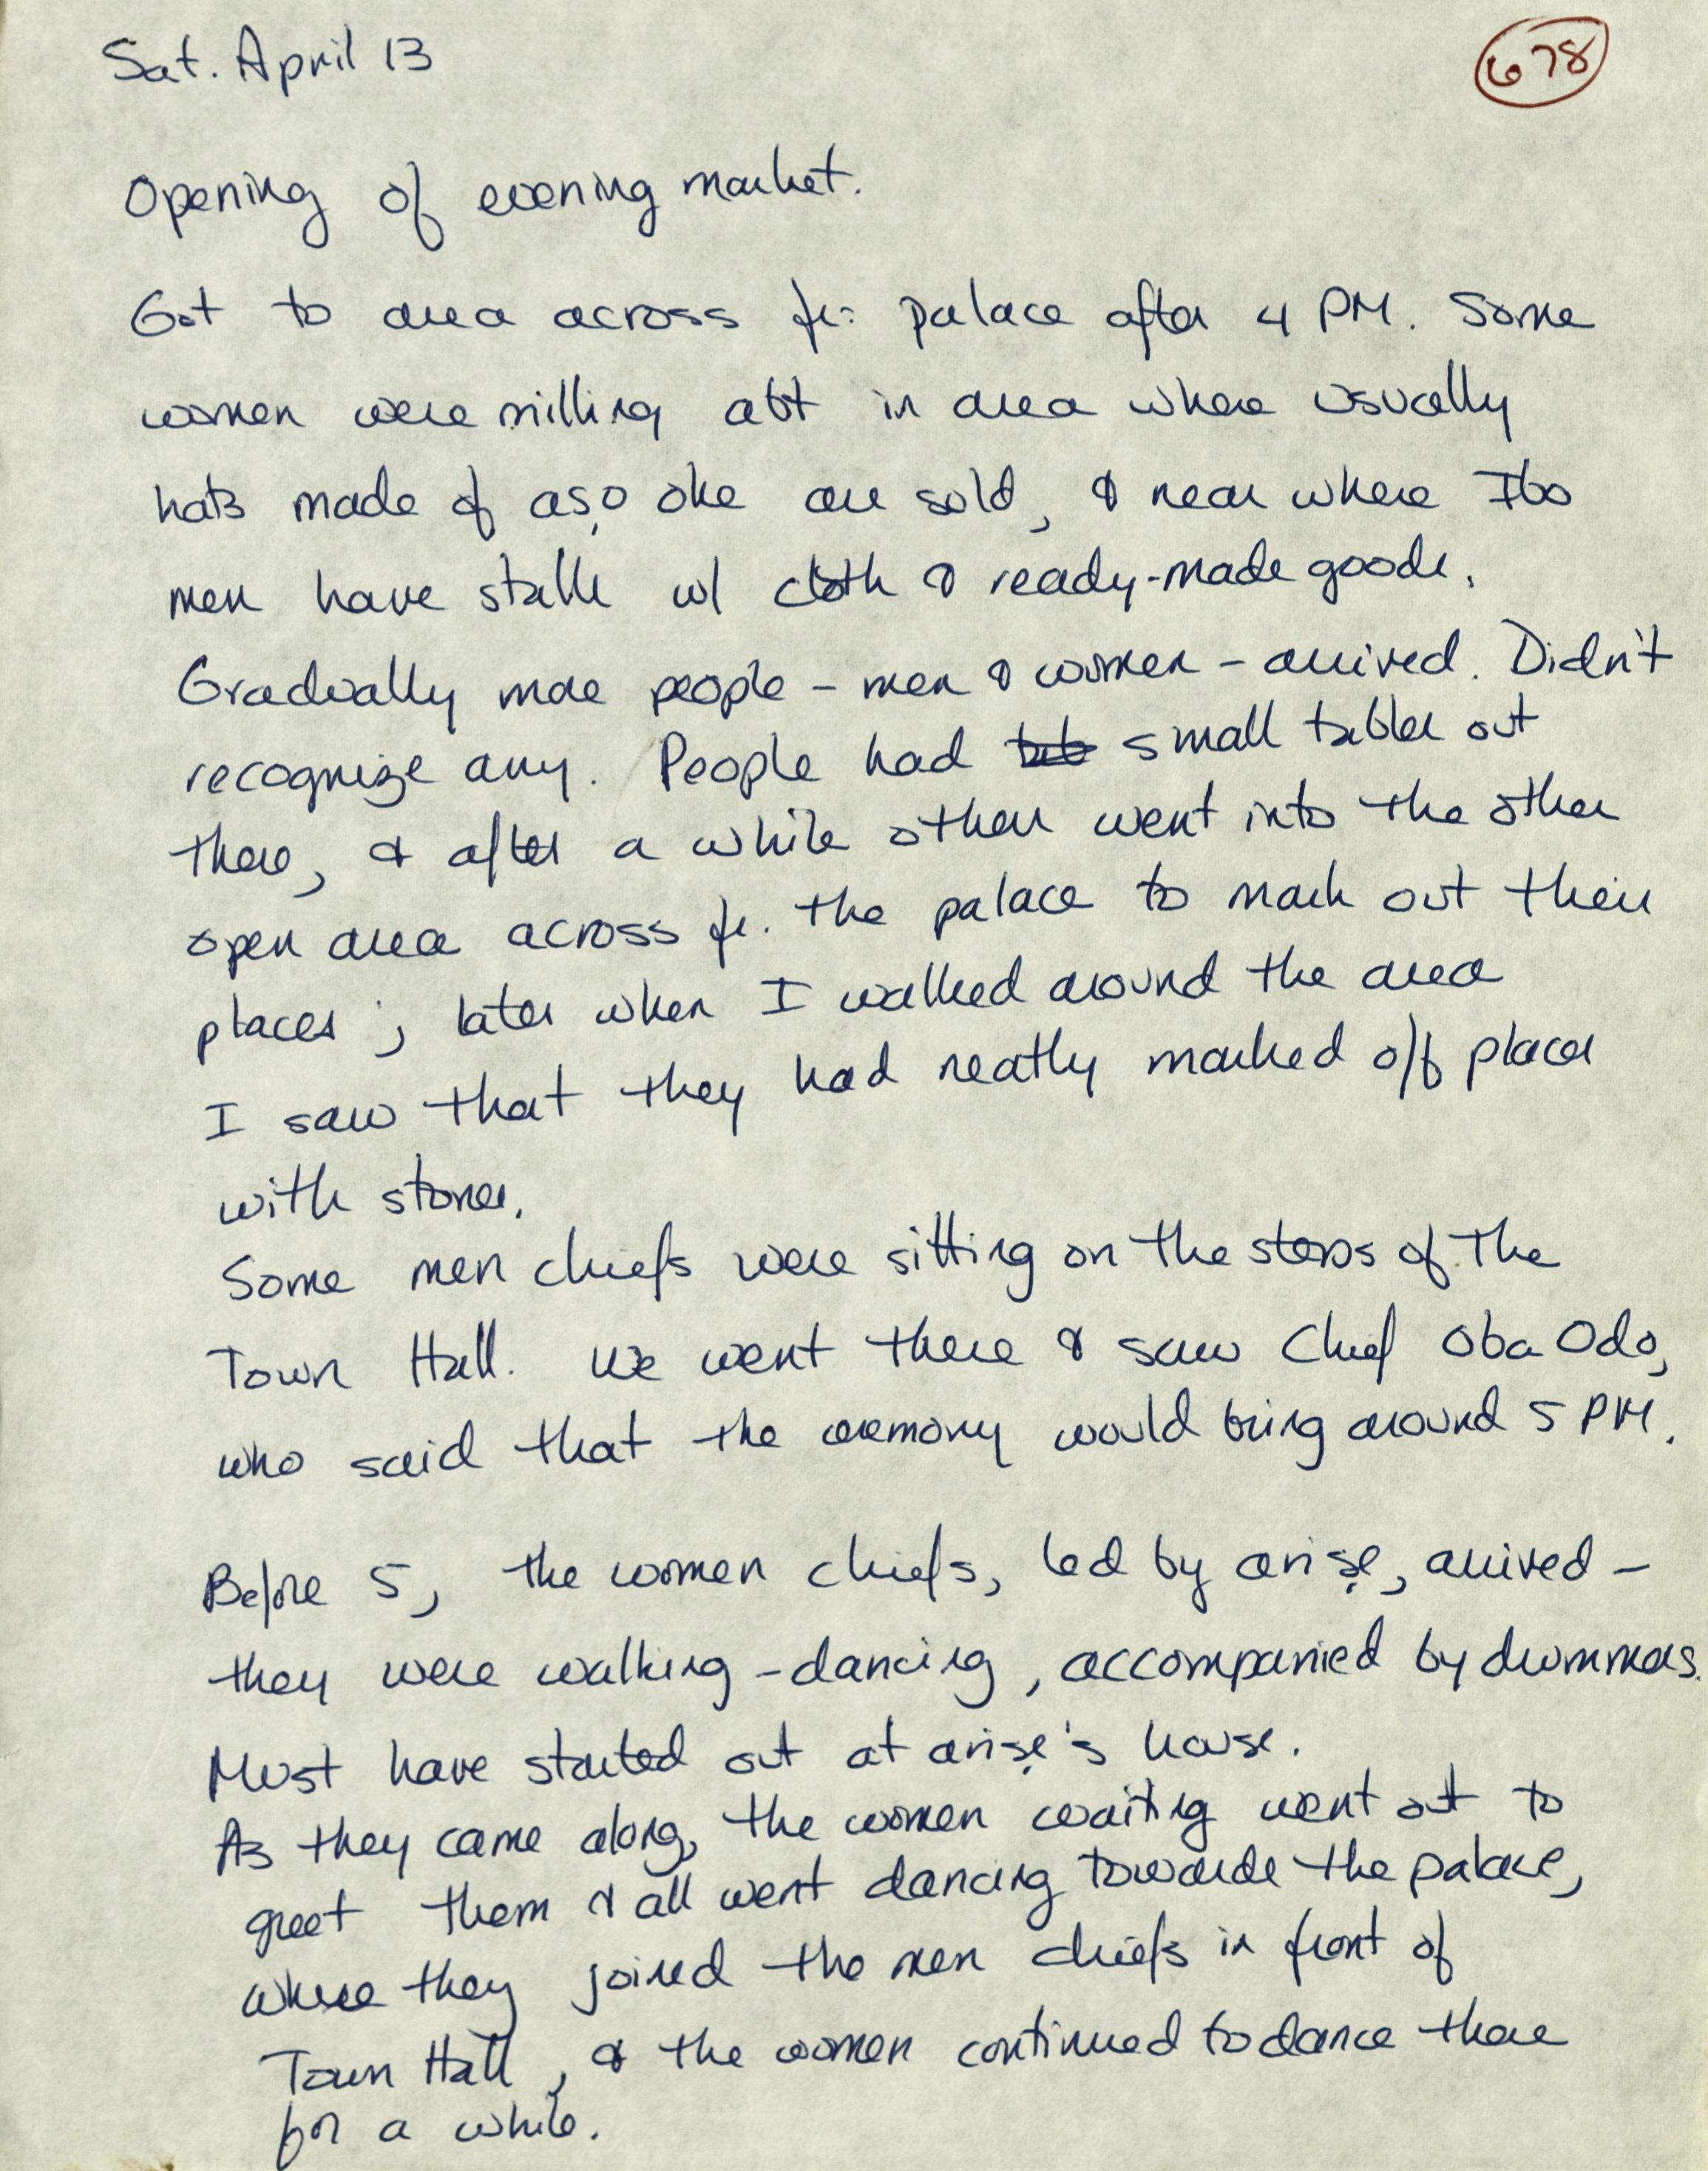 Sat. April 13
678
Opening of evening market.
Got to area across fr: palace after 4 PM. Some
women were milling abt in area where usually
hats made of aṣọ oke are sold, & near where Ibo
men have stalls w/ cloth & ready-made goods.
Gradually more people – men & women – arrived. Didn't
recognize any. People had tab small tables out
there, & after a while others went into the other
open area across fr. the palace to mark out their
places; later when I walked around the area
I saw that they had neatly marked off places
with stones.
Some men chiefs were sitting on the steps of the
Town Hall. We went there & saw Chief Oba Odo,
who said that the ceremony would bring around 5 PM.
Before 5, the women chiefs, led by ariṣẹ, arrived –
they were walking-dancing, accompanied by drummers.
Must have started out at ariṣẹ's house.
As they came along, the women waiting went out to
greet them & all went dancing towards the palace,
where they joined the men chiefs in front of
Town Hall, & the women continued to dance there
for a while.